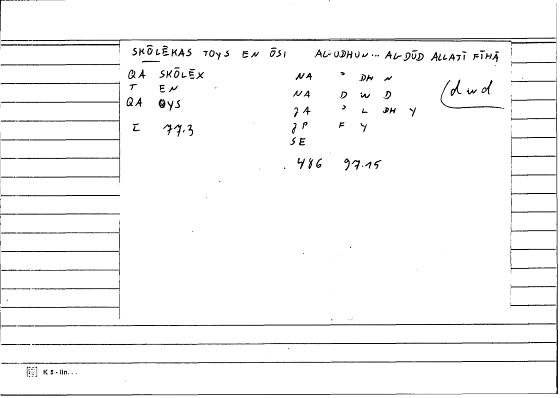 SKŌLĒKAS TOYS EN ŌSI AL-UDHUN... AL-DŪD ALLATĪ FĪHĀ
QA SKŌLĒX NA ʾ DH N
T EN NA D W D (dwd
QA OYS JA ʾ L DH Y
I 77.3 JP F Y
SE
486 97.15
K 8 - lin...